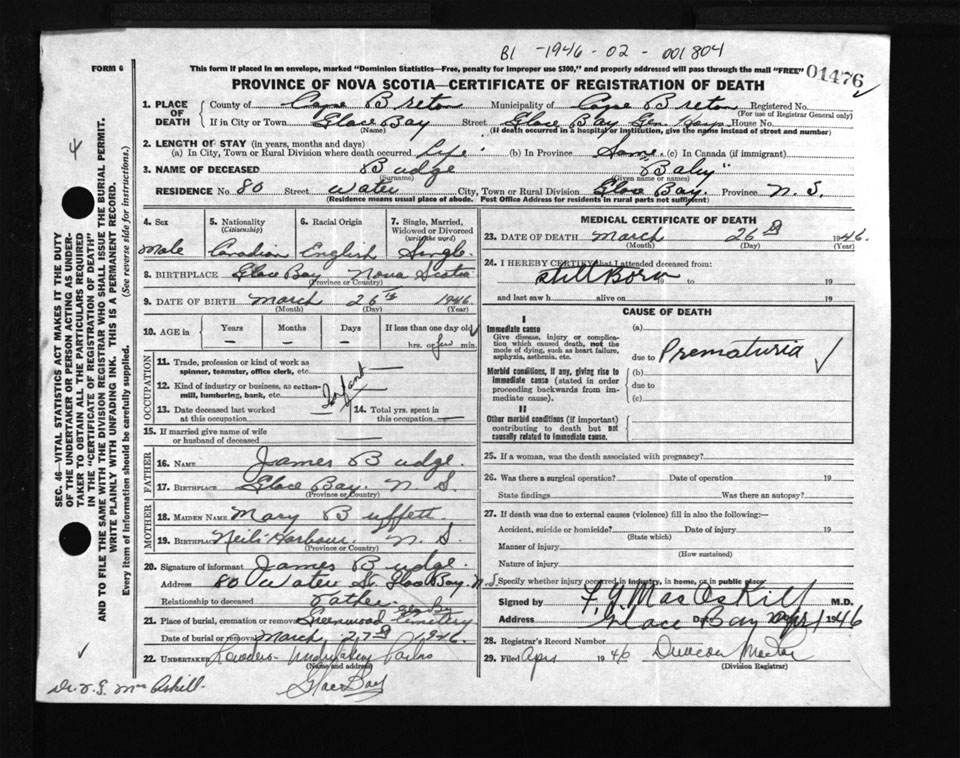 B1 - 1946 - 02 - 001804
FORM 6
This form if placed in an envelope, marked "Dominion Statistics—Free, penalty for improper use $300," and properly addressed will pass through the mail "FREE"
01476
PROVINCE OF NOVA SCOTIA—CERTIFICATE OF REGISTRATION OF DEATH
SEC. 46—VITAL STATISTICS ACT MAKES IT THE DUTY
OF THE UNDERTAKER OR PERSON ACTING AS UNDER-
TAKER TO OBTAIN ALL THE PARTICULARS REQUIRED
IN THE "CERTIFICATE OF REGISTRATION OF DEATH"
AND TO FILE THE SAME WITH THE DIVISION REGISTRAR WHO SHALL ISSUE THE BURIAL PERMIT.
WRITE PLAINLY WITH UNFADING INK. THIS IS A PERMANENT RECORD.
Every item of Information should be carefully supplied. (See reverse side for instructions.)
4
1. PLACE OF DEATH
County of Cape Breton Municipality of Cape Breton Registered No.
(For use of Registrar General only)
If in City or Town Glace Bay Street Glace Bay Gen. Hosp. House No.
(Name) (If death occurred in a hospital or institution, give the name instead of street and number)
2. LENGTH OF STAY (in years, months and days)
(a) In City, Town or Rural Division where death occurred Life (b) In Province Same (c) In Canada (if immigrant)
3. NAME OF DECEASED Budge "Baby"
(Surname) (Given name or names)
RESIDENCE No. 80 Street Water City, Town or Rural Division Glace Bay. Province N. S.
(Residence means usual place of abode. Post Office Address for residents in rural parts not sufficient)
4. Sex Male
5. Nationality (Citizenship) Canadian
6. Racial Origin English
7. Single, Married, Widowed or Divorced (write the word) Single
8. BIRTHPLACE Glace Bay Nova Scotia
(Province or Country)
9. DATE OF BIRTH March 26th 1946
(Month) (Day) (Year)
10. AGE in Years — Months — Days — If less than one day old
hrs. or few min.
OCCUPATION
11. Trade, profession or kind of work as spinner, teamster, office clerk, etc.
12. Kind of industry or business, as cotton-mill, lumbering, bank, etc. Infant
13. Date deceased last worked at this occupation
14. Total yrs. spent in this occupation
15. If married give name of wife or husband of deceased
FATHER
16. NAME James Budge.
17. BIRTHPLACE Glace Bay. N. S.
(Province or Country)
MOTHER
18. MAIDEN NAME Mary Buffett
19. BIRTHPLACE Neils Harbour. N. S.
(Province or Country)
20. Signature of informant James Budge.
Address 80 Water St. Glace Bay. N.S.
Relationship to deceased Father
21. Place of burial, cremation or removal Greenwood Cemetery
Date of burial or removal March 27th 1946
22. UNDERTAKER Undertaking Parlors
(Name and address)
Glace Bay
MEDICAL CERTIFICATE OF DEATH
23. DATE OF DEATH March 26th 1946
(Month) (Day) (Year)
24. I HEREBY CERTIFY that I attended deceased from:
Still Born 19 to 19
and last saw h alive on 19
CAUSE OF DEATH
I
Immediate cause
Give disease, injury or complication which caused death, not the mode of dying, such as heart failure, asphyxia, asthenia, etc.
(a)
due to Prematuria
Morbid conditions, if any, giving rise to immediate cause (stated in order proceeding backwards from immediate cause).
(b)
due to
(c)
II
Other morbid conditions (if important) contributing to death but not causally related to immediate cause.
25. If a woman, was the death associated with pregnancy?
26. Was there a surgical operation? Date of operation 19
State findings Was there an autopsy?
27. If death was due to external causes (violence) fill in also the following:—
Accident, suicide or homicide? Date of injury 19
(State which)
Manner of injury
(How sustained)
Nature of injury
Specify whether injury occurred in industry, in home, or in public place
Signed by F. G. MacAskill M.D.
Address Glace Bay Date Apr 1 1946
28. Registrar's Record Number
29. Filed Apr 1946 Duncan
(Division Registrar)